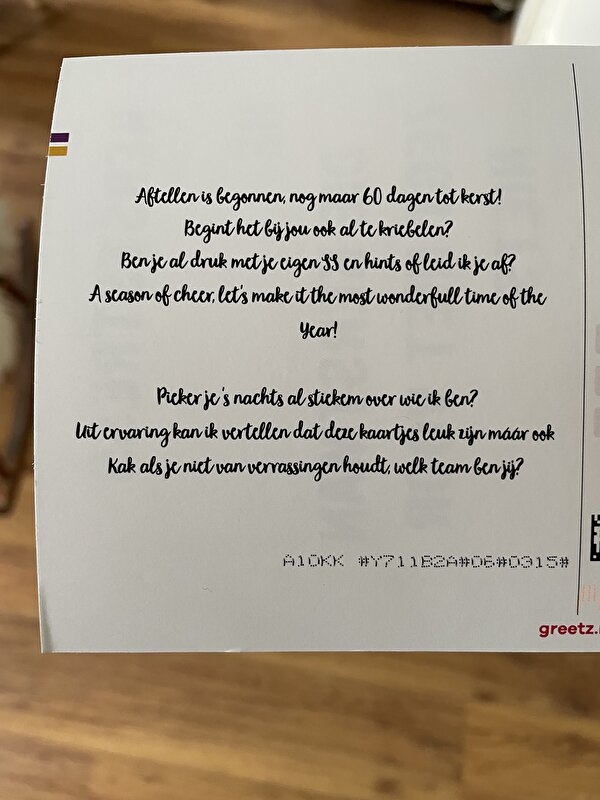 Aftellen is begonnen, nog maar 60 dagen tot kerst!
Begint het bij jou ook al te kriebelen?
Ben je al druk met je eigen SS en hints of leid ik je af?
A season of cheer, let's make it the most wonderfull time of the
Year!
Pieker je 's nachts al stiekem over wie ik ben?
Uit ervaring kan ik vertellen dat deze kaartjes leuk zijn máár ook
Kak als je niet van verrassingen houdt, welk team ben jij?
A10KK #Y711B2A#06#0315#
greetz.